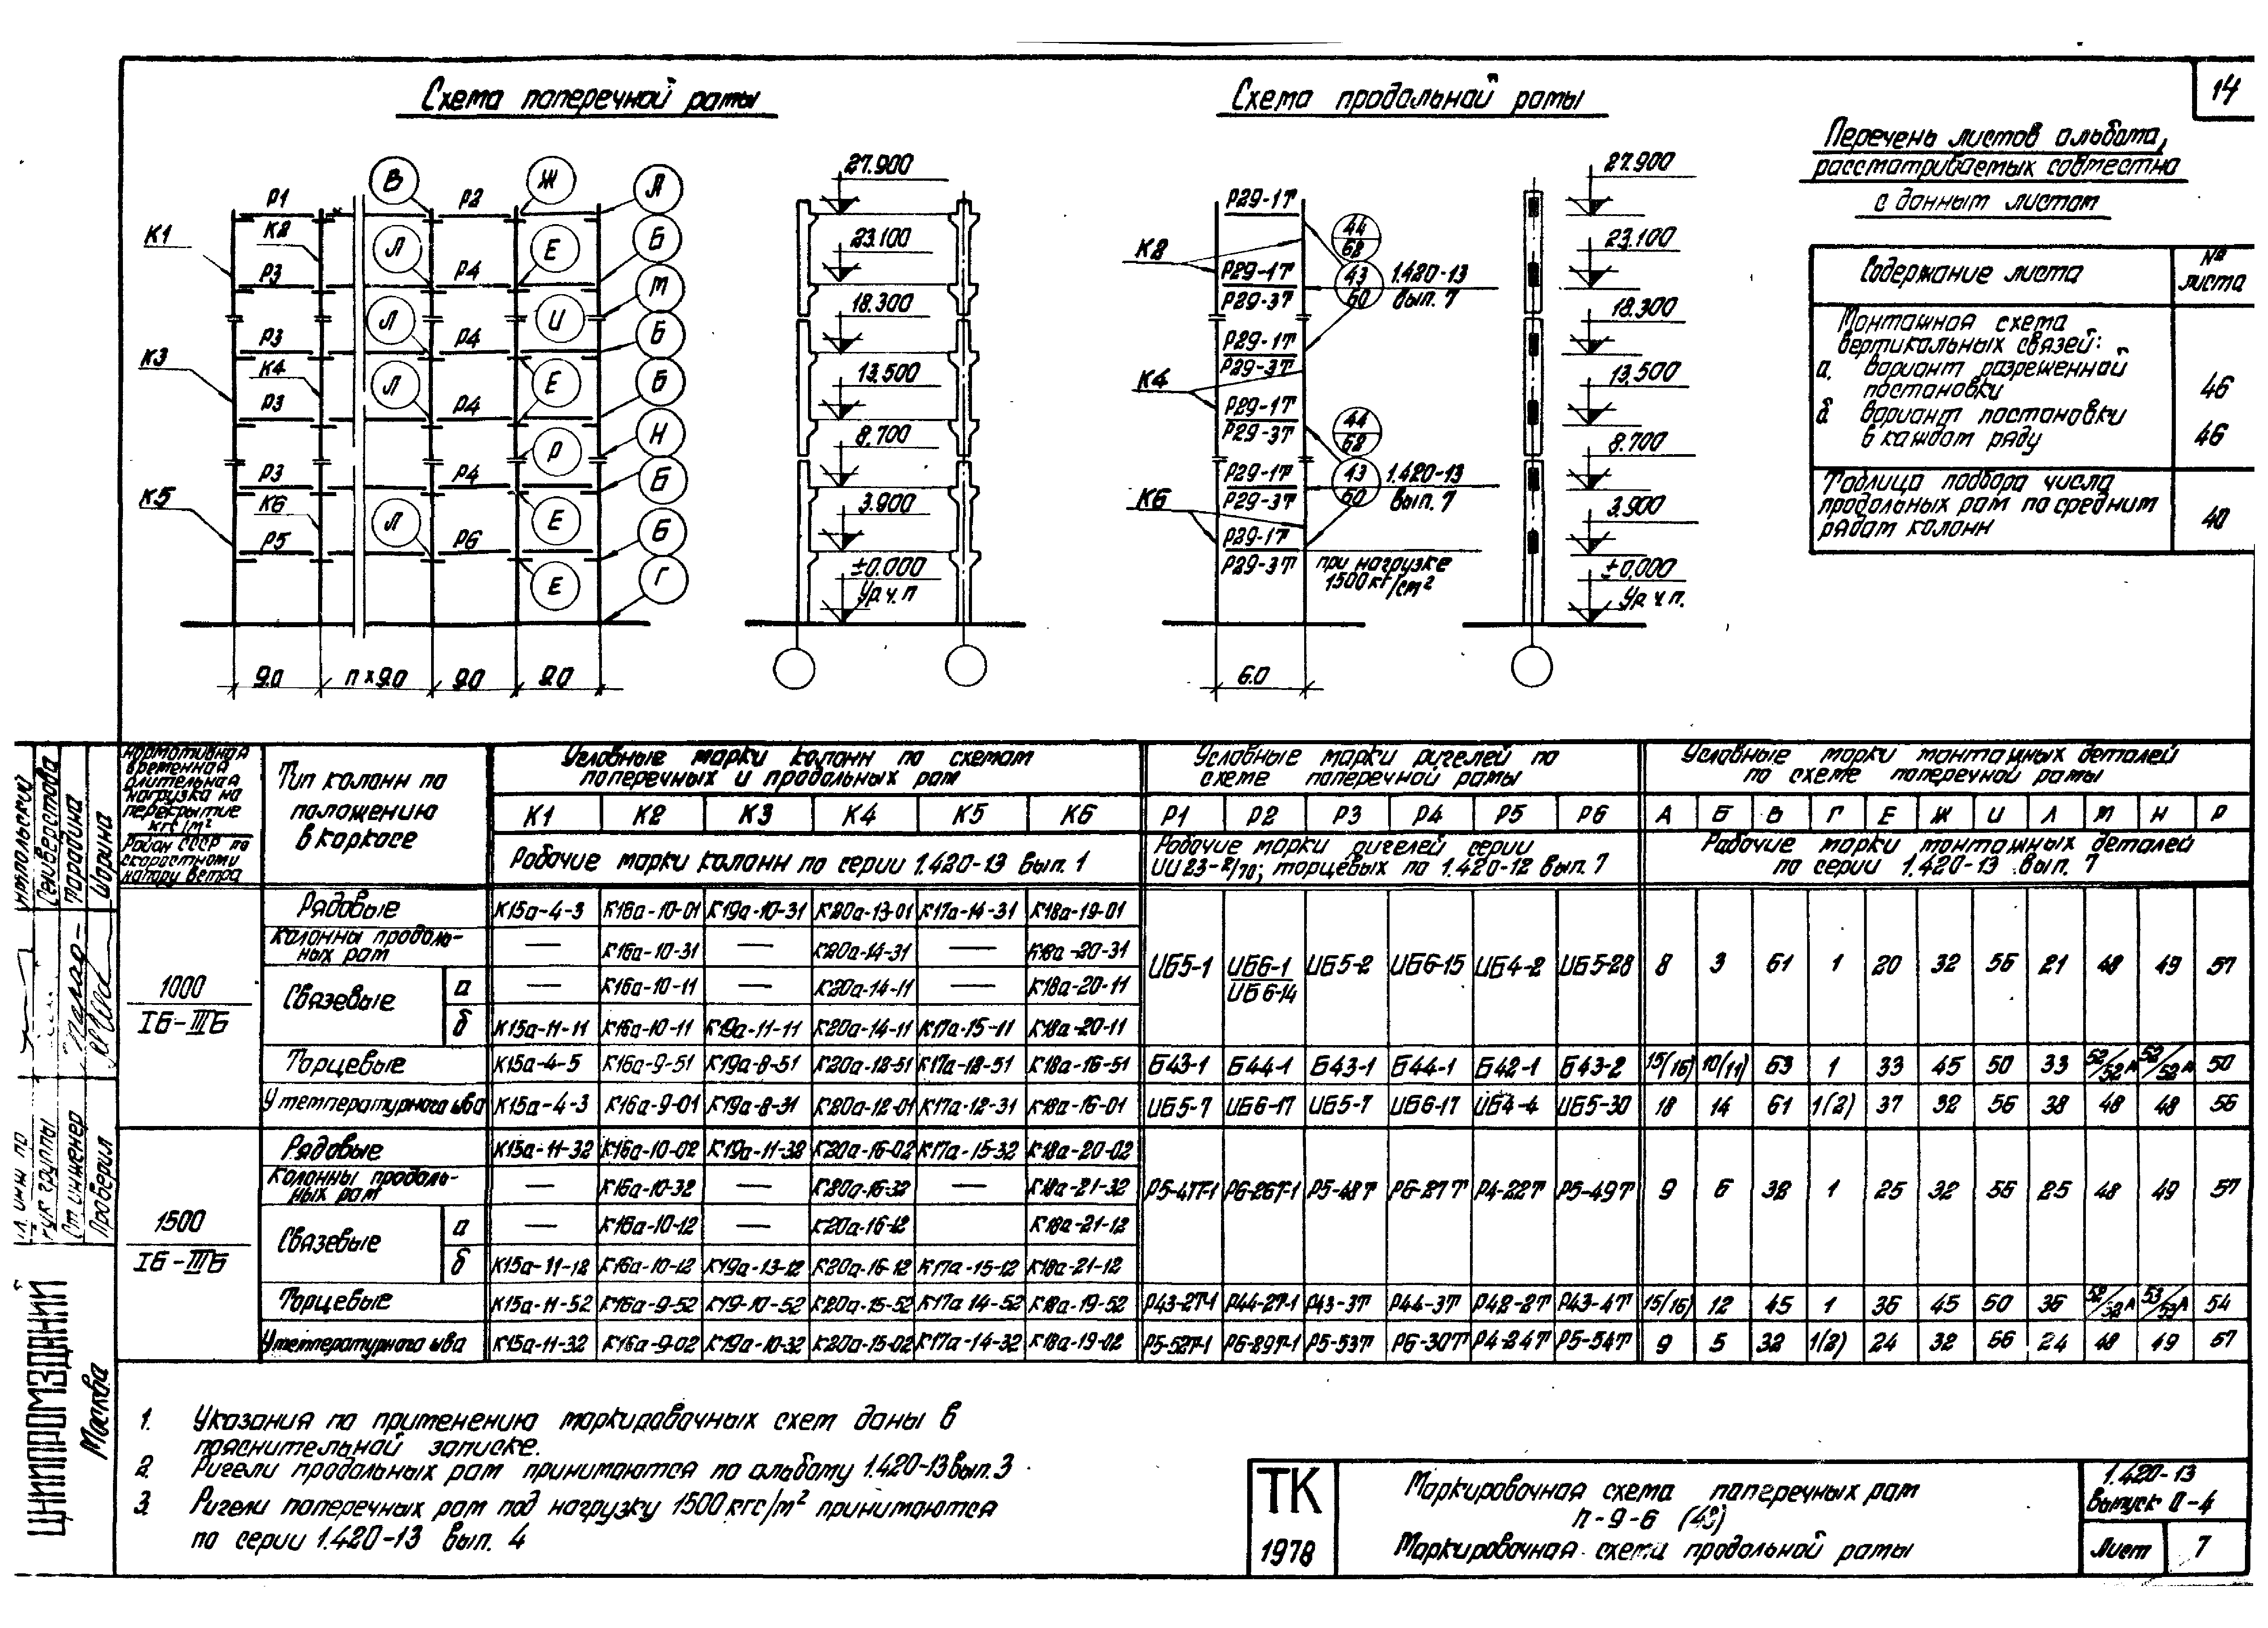 14
Схема поперечной рамы
Схема продольной рамы
Перечень листов альбома,
рассматриваемых совместно
с данным листом
Содержание листа
№№
листа
Монтажная схема
вертикальных связей:
а. вариант разреженной
постановки
46
б вариант постановки
в каждом ряду
46
Таблица подбора числа
продольных рам по средним
рядам колонн
40
Р1 В Р2 Ж А
К1 К2 Л Е Б
Р3 Р4 М
Л И
Р3 Р4 Б
К3 К4 Л Е Б
Р3 Р4 Н
Р
Р3 Р4 Б
К5 К6 Л Е Б
Р5 Р6
Е Г
9.0 п×9.0 9.0 9.0
27.900
23.100
18.300
13.500
8.700
3.900
±0.000
Ур.ч.п
Р29-1Т
К2
44
62
Р29-1Т
Р29-3Т
43
60
1.420-13
вып. 7
Р29-1Т
Р29-3Т
К4
Р29-1Т
Р29-3Т
44
62
Р29-1Т
Р29-3Т
43
60
1.420-13
вып. 7
К6
Р29-1Т
Р29-3Т
при нагрузке
1500кг/см²
6.0
27.900
23.100
18.300
13.500
8.700
3.900
±0.000
Ур.ч.п.
Нормативная
временная
длительная
нагрузка на
перекрытие
кгс/м²
Район СССР по
скоростному
напору ветра
Тип колонн по
положению
в каркасе
Условные марки колонн по схемам
поперечных и продольных рам
Условные марки ригелей по
схеме поперечной рамы
Условные марки монтажных деталей
по схеме поперечной рамы
К1 К2 К3 К4 К5 К6 Р1 Р2 Р3 Р4 Р5 Р6 А Б В Г Е Ж И Л М Н Р
Рабочие марки колонн по серии 1.420-13 вып. 1
Рабочие марки ригелей серии
ИИ23-2/70; торцевых по 1.420-12 вып. 7
Рабочие марки монтажных деталей
по серии 1.420-13 вып. 7
1000
IБ-IIIБ
Рядовые К15а-4-3 К16а-10-01 К19а-10-31 К20а-13-01 К17а-14-31 К18а-19-01
Колонны продоль-
ных рам — К16а-10-31 — К20а-14-31 — К18а-20-31
ИБ5-1 ИБ6-1 ИБ5-2 ИБ6-15 ИБ4-2 ИБ5-28 8 3 61 1 20 32 56 21 48 49 57
ИБ6-14
Связевые а — К16а-10-11 — К20а-14-11 — К18а-20-11
б К15а-11-11 К16а-10-11 К19а-11-11 К20а-14-11 К17а-15-11 К18а-20-11
Торцевые К15а-4-5 К16а-9-51 К19а-8-51 К20а-12-51 К17а-12-51 К18а-16-51 Б43-1 Б44-1 Б43-1 Б44-1 Б42-1 Б43-2 15(16) 10(11) 63 1 33 45 50 33 52/52А 52/52А 50
У температурного шва К15а-4-3 К16а-9-01 К19а-8-31 К20а-12-01 К17а-12-31 К18а-16-01 ИБ5-7 ИБ6-17 ИБ5-7 ИБ6-17 ИБ4-4 ИБ5-30 18 14 61 1(2) 37 32 56 38 48 48 56
1500
IБ-IIIБ
Рядовые К15а-11-32 К16а-10-02 К19а-11-32 К20а-16-02 К17а-15-32 К18а-20-02
Колонны продоль-
ных рам — К16а-10-32 — К20а-16-32 — К18а-21-32
Р5-47Т-1 Р6-26Т-1 Р5-48Т Р6-27Т Р4-22Т Р5-49Т 9 6 32 1 25 32 56 25 48 49 57
Связевые а — К16а-10-12 — К20а-16-12 К18а-21-12
б К15а-11-12 К16а-10-12 К19а-13-12 К20а-16-12 К17а-15-12 К18а-21-12
Торцевые К15а-11-52 К16а-9-52 К19-10-52 К20а-15-52 К17а 14-52 К18а-19-52 Р43-2Т-1 Р44-2Т-1 Р43-3Т Р44-3Т Р42-2Т Р43-4Т 15(16) 12 45 1 36 45 50 36 52/52А 53/53А 54
У температурного шва К15а-11-32 К16а-9-02 К19а-10-32 К20а-15-02 К17а-14-32 К18а-19-02 Р5-52Т-1 Р6-29Т-1 Р5-53Т Р6-30Т Р4-24Т Р5-54Т 9 5 32 1(2) 24 32 56 24 48 49 57
1. Указания по применению маркировочных схем даны в
пояснительной записке.
2. Ригели продольных рам принимаются по альбому 1.420-13 вып. 3
3. Ригели поперечных рам под нагрузку 1500кгс/м² принимаются
по серии 1.420-13 вып. 4
ТК
1978
Маркировочная схема поперечных рам
п-9-6 (48)
Маркировочная схема продольной рамы
1.420-13
выпуск 0-4
Лист 7
Селиверстова
Тарадина
Шарина
Гл. инж. пр
Рук. группы
Ст. инженер
Проверил
ЦНИИПРОМЗДАНИЙ
Москва